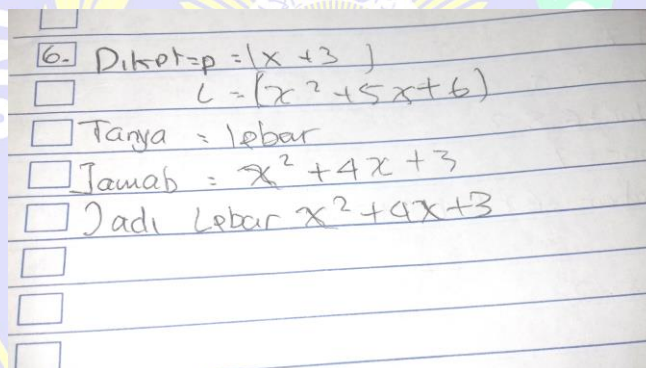 6. Diket=p = (x + 3 )
L = (x² + 5x + 6)
Tanya = lebar
Jawab : x² + 4x + 3
Jadi Lebar x² + 4x + 3